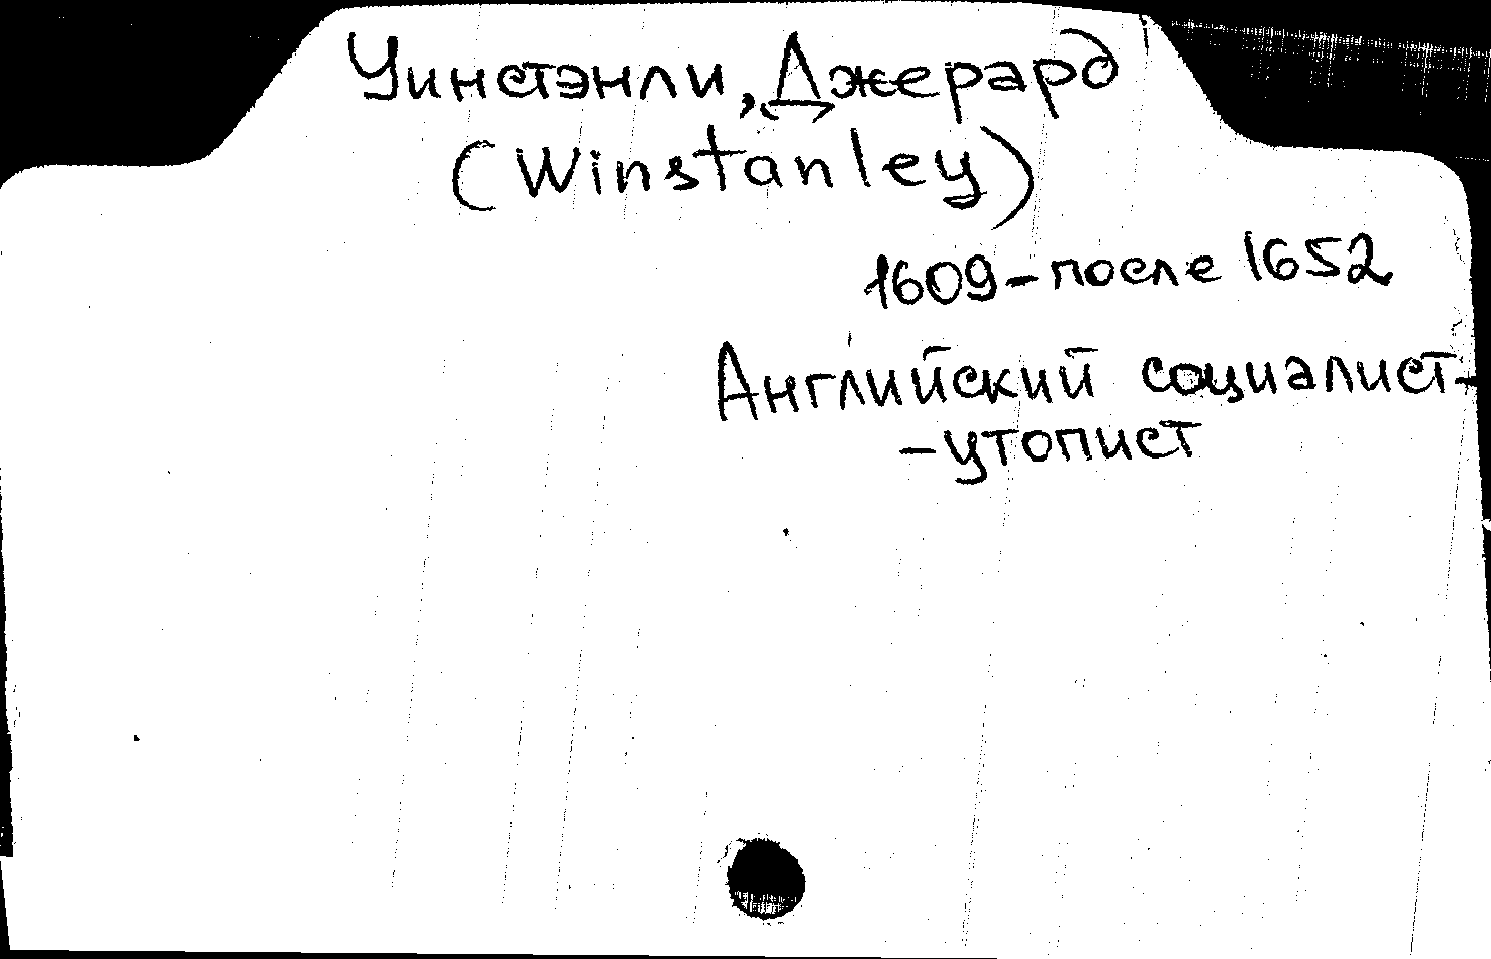 Уинстэнли, Джерард
(Winstanley)
1609 – после 1652
Английский социалист-
-утопист